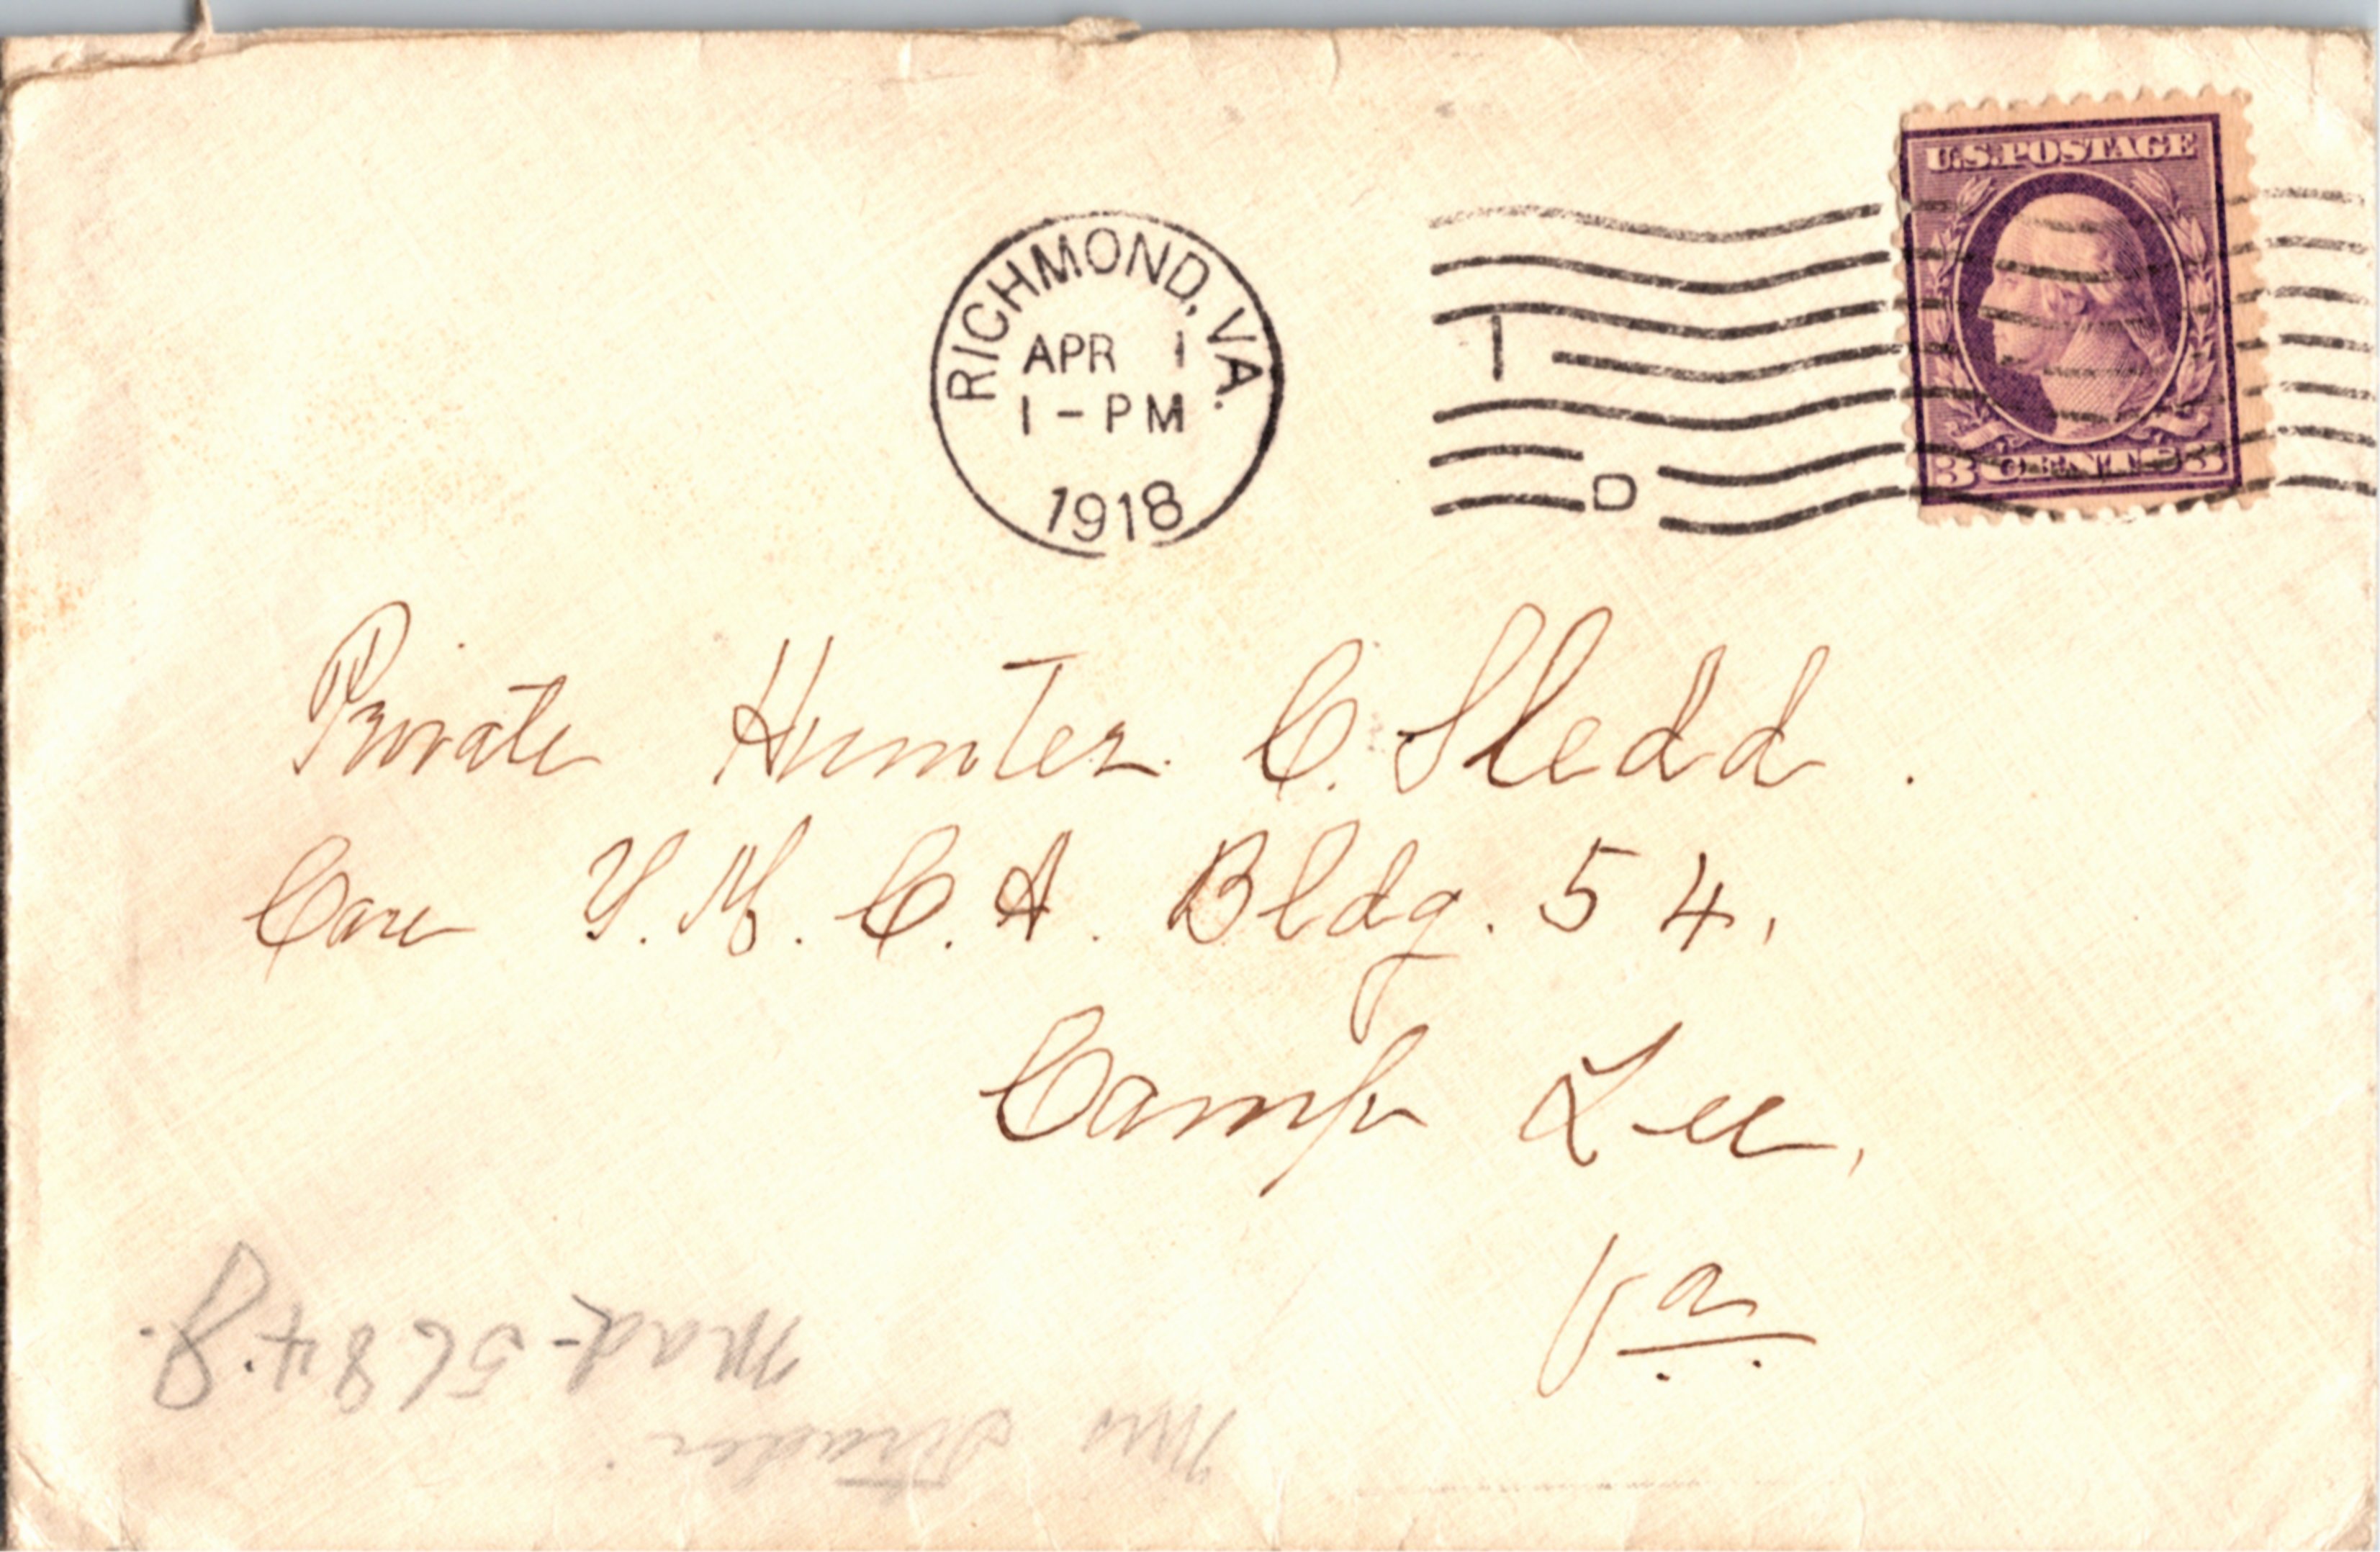 U.S. POSTAGE
3 CENTS 3
RICHMOND, VA.
APR 1
1-PM
1918
1
D
Private Hunter C. Sledd.
Care Y.M.C.A. Bldg. 54,
Camp Lee,
Va
Mrs
Mad-5684.J.